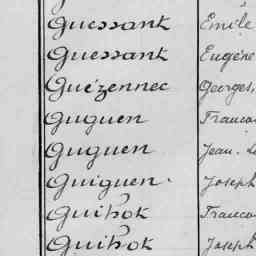 Guessant Emile
Guessant Eugène
Guézennec Georges,
Guguen
Guguen Jean.
Guiguen. Joseph
Guihok
Guihok Joseph